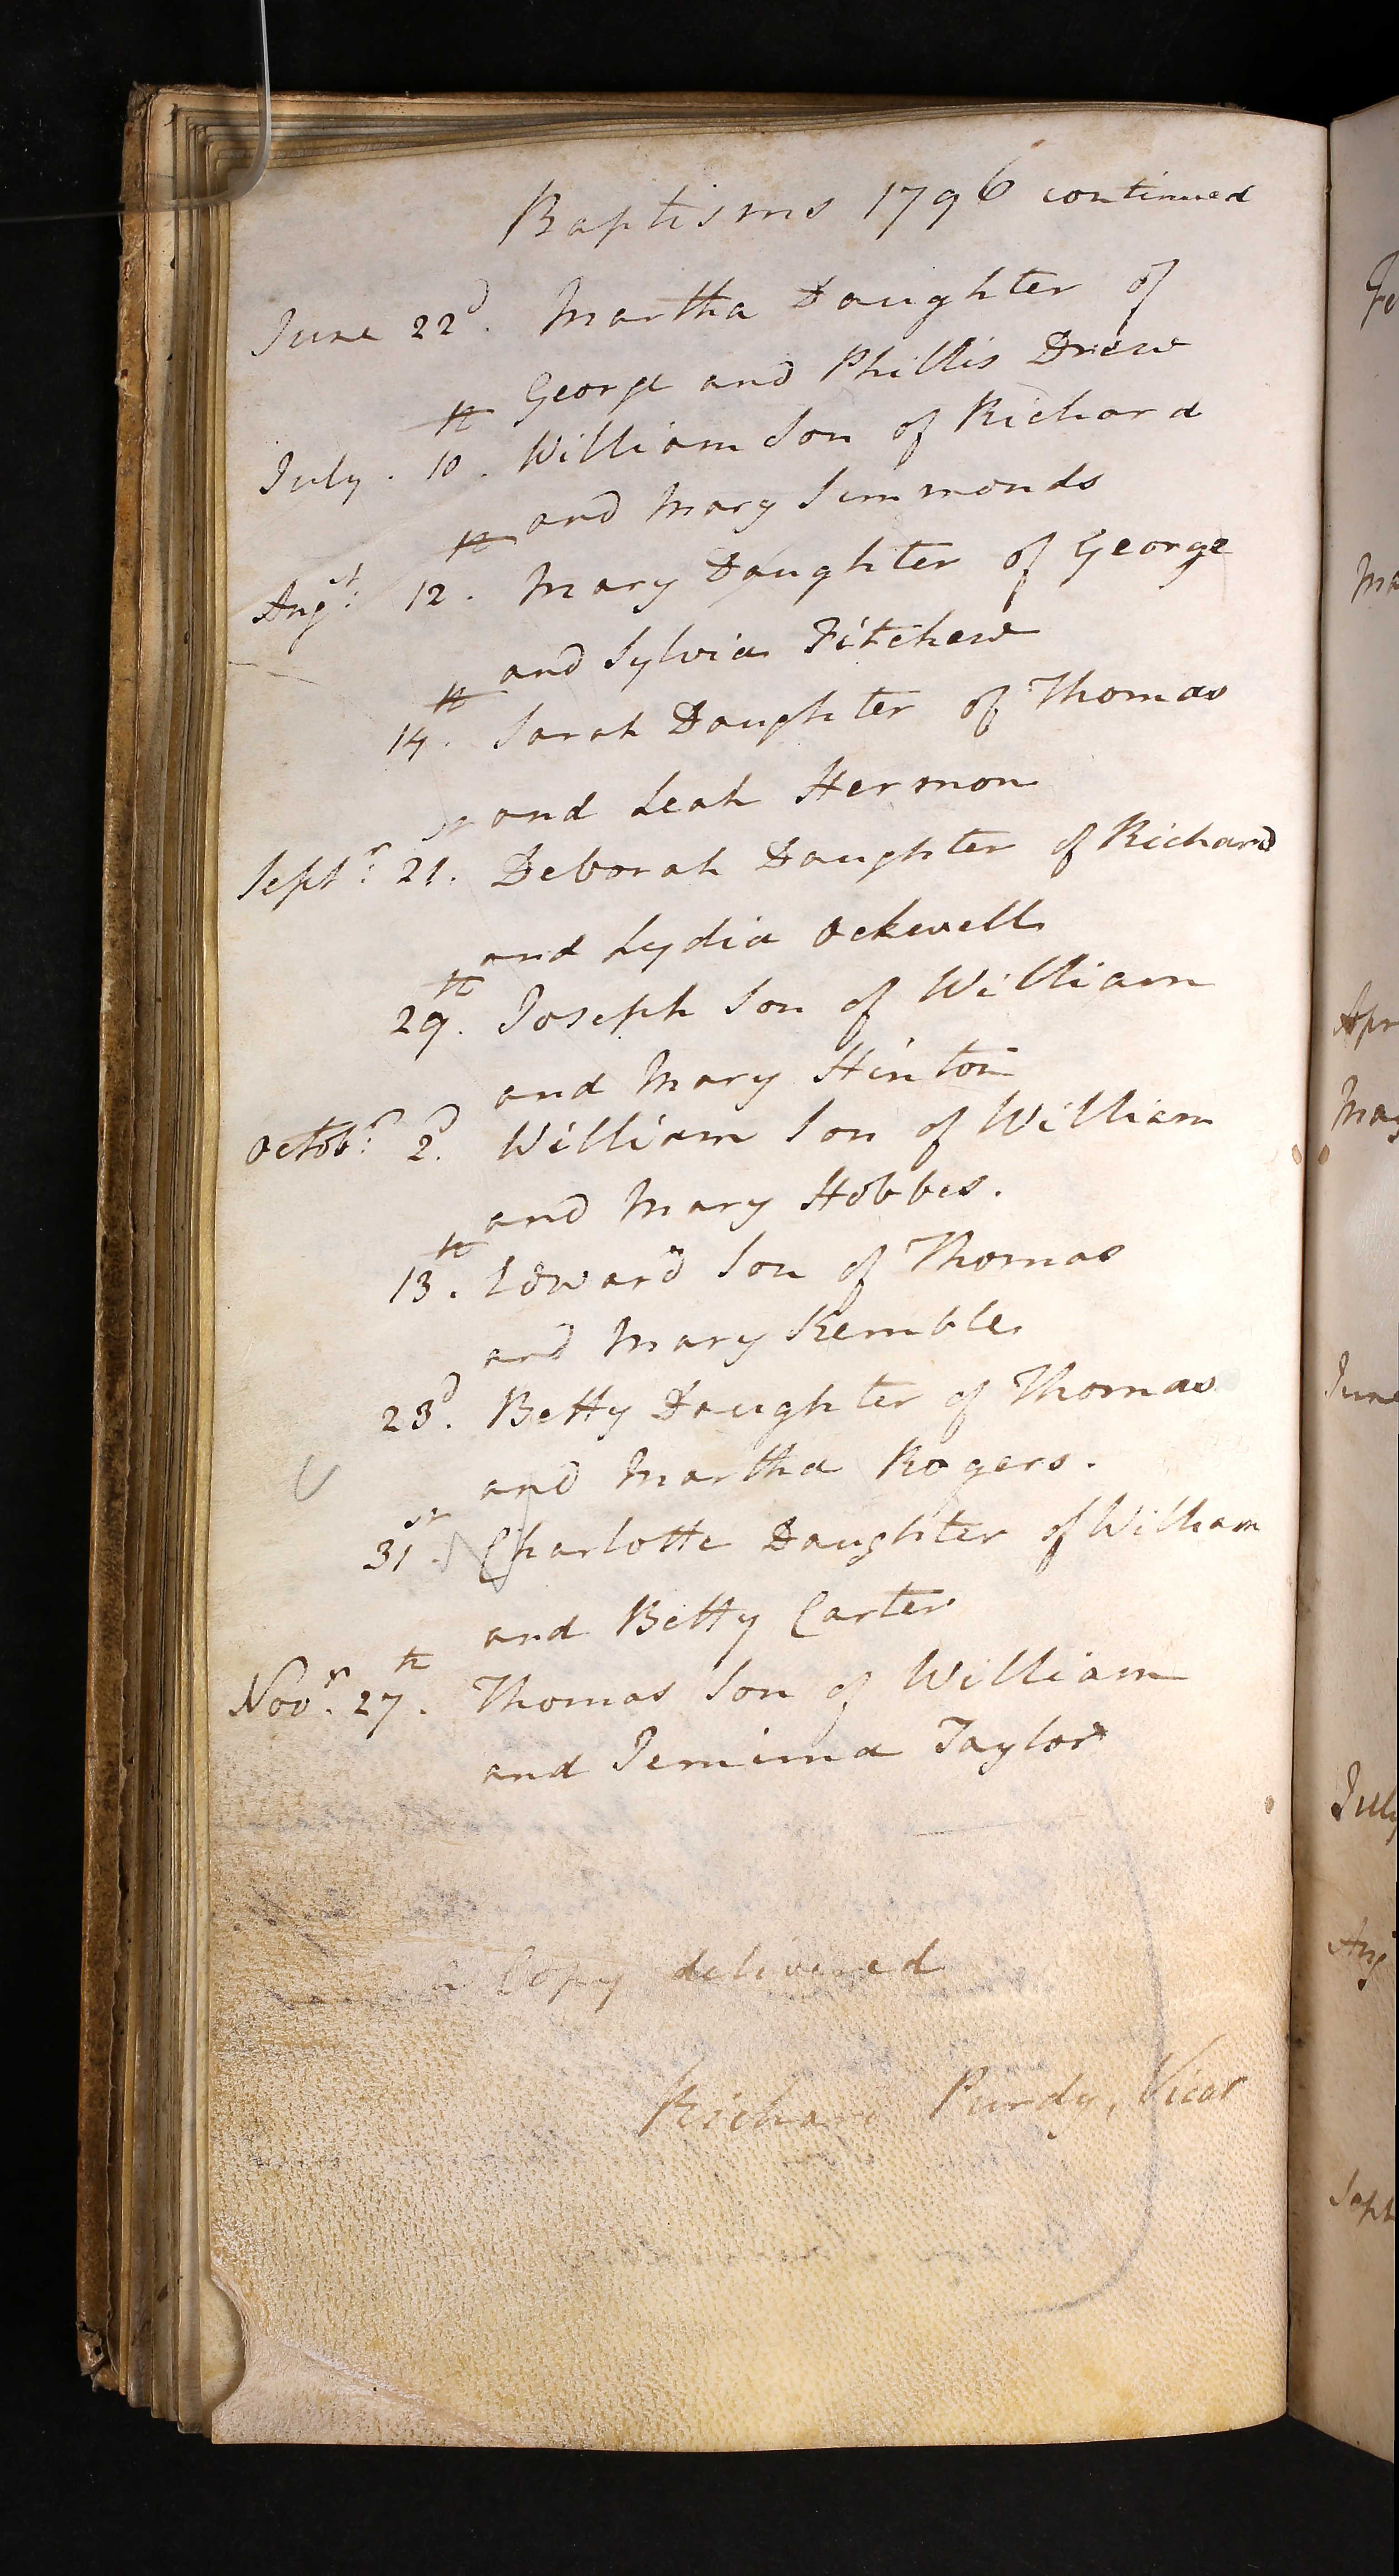 Baptisms 1796 continued
June 22d. Martha Daughter of
George and Phillis Drew
July. 10th. William Son of Richard
and Mary Simmonds
Augst: 12th. Mary Daughter of George
and Sylvia Fitchew
14th. Sarah Daughter of Thomas
and Leah Hermon
Septr: 21st. Deborah Daughter of Richard
and Lydia Ockwell
29th. Joseph Son of William
and Mary Hinton
Octobr: 2d. William Son of William
and Mary Hobbes.
13th. Edward Son of Thomas
and Mary Kemble
23d. Betty Daughter of Thomas
and Martha Rogers.
31st. Charlotte Daughter of William
and Betty Carter
Novr. 27th. Thomas Son of William
and Jemima Taylor
a Copy delivered
Richard Purdy, Vicar
June
July
Sept